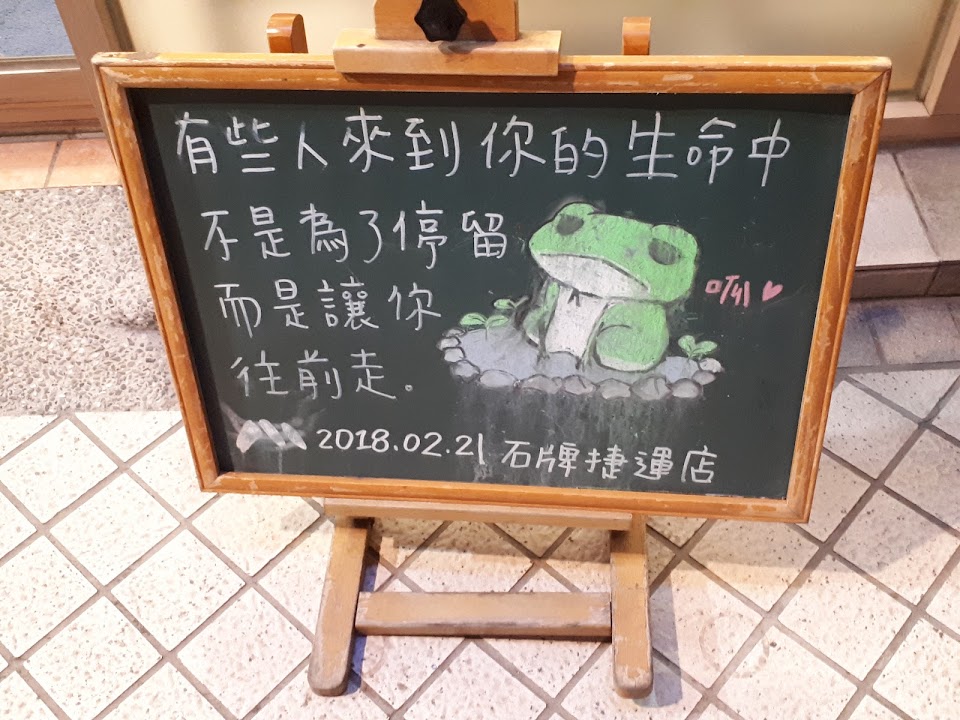 有些人來到你的生命中
不是為了停留
而是讓你
往前走.
呱
2018.02.21 石牌捷運店